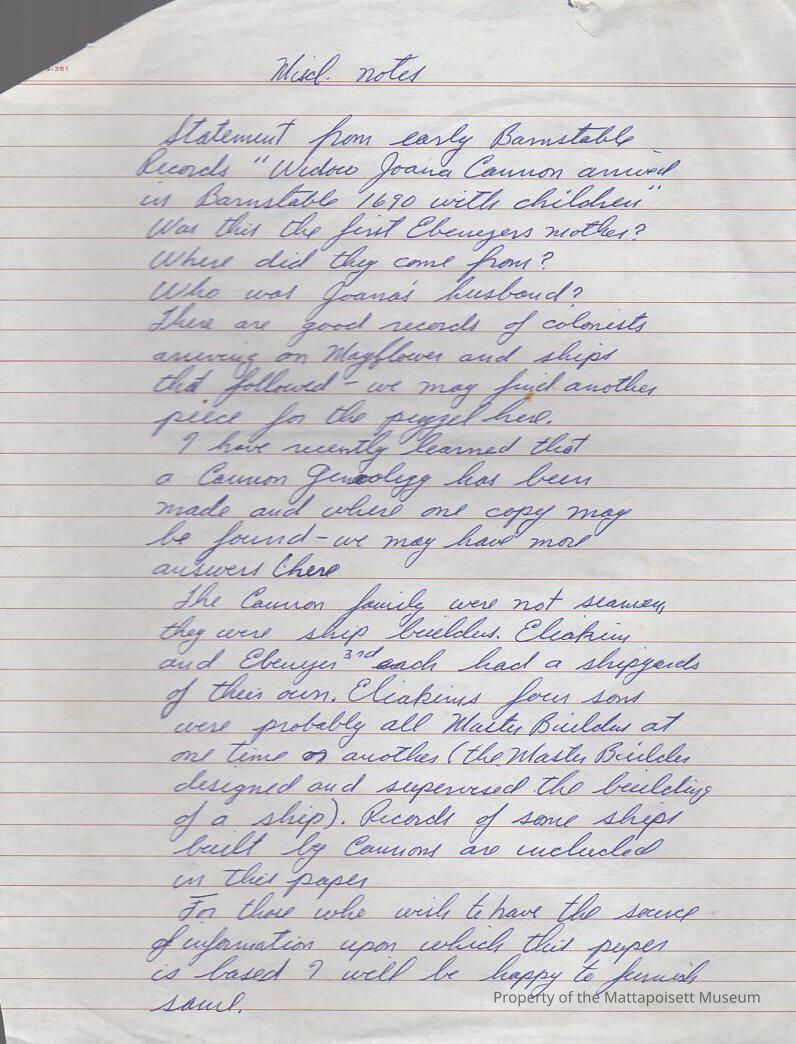 5-351
Miscl. notes
Statement from early Barnstable
Records "Widow Joana Cannon arrived
in Barnstable 1690 with children"
Was this the first Ebenezers mother?
Where did they come from?
Who was Joana's husband?
There are good records of colonists
arriving on Mayflower and ships
that followed - we may find another
piece for the puzzel here.
I have recently learned that
a Cannon Geneology has been
made and where one copy may
be found - we may have more
answers there
The Cannon family were not seamen,
they were ship builders. Eliakim
and Ebenezer 3rd each had a shipyards
of their own. Eliakims four sons
were probably all Master Builders at
one time or another (the Master Builder
designed and supervised the building
of a ship). Records of some ships
built by Cannons are included
in this paper
For those who wish to have the source
of information upon which this paper
is based I will be happy to furnish
same.
Property of the Mattapoisett Museum